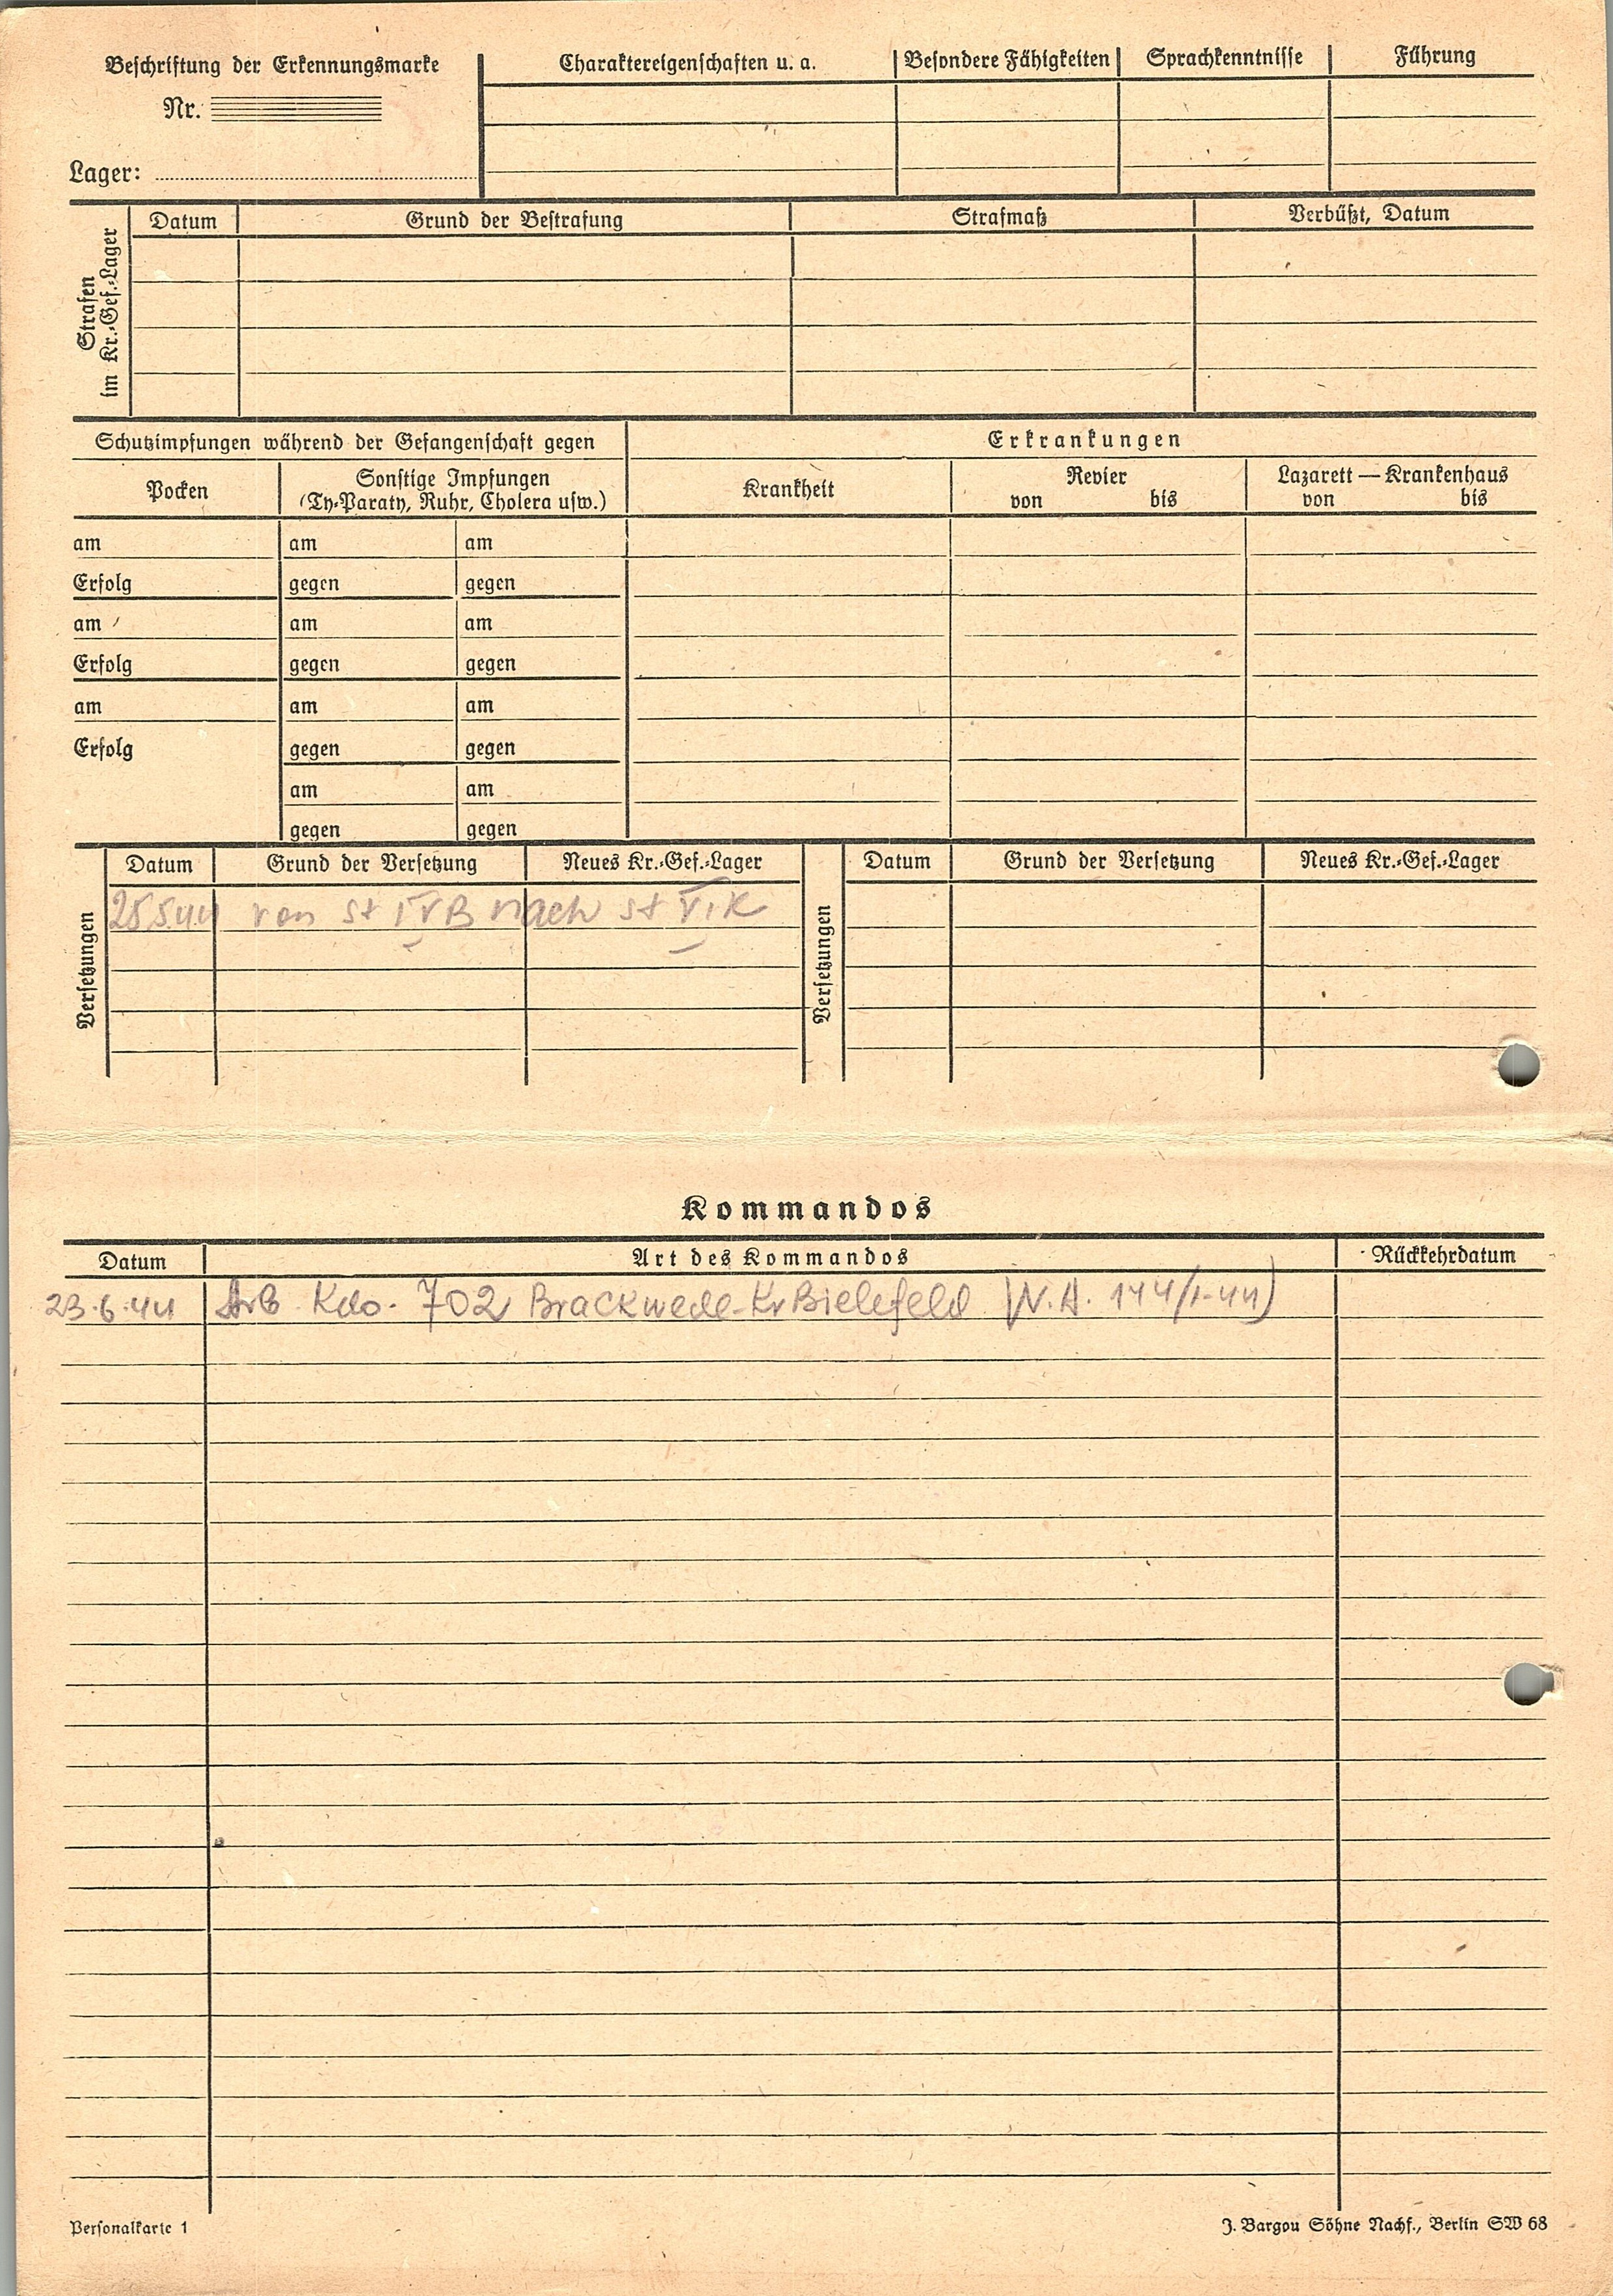 Beschriftung der Erkennungsmarke
Nr.
Lager:
Charaktereigenschaften u. a.
Besondere Fähigkeiten
Sprachkenntnisse
Führung
Strafen
im Kr.-Gef.-Lager
Datum
Grund der Bestrafung
Strafmaß
Verbüßt, Datum
Schutzimpfungen während der Gefangenschaft gegen
Erkrankungen
Pocken
Sonstige Impfungen
(Ty-Paraty, Ruhr, Cholera usw.)
Krankheit
Revier
von bis
Lazarett — Krankenhaus
von bis
am am am
Erfolg gegen gegen
am am am
Erfolg gegen gegen
am am am
Erfolg gegen gegen
am am
gegen gegen
Versetzungen
Datum Grund der Versetzung Neues Kr.-Gef.-Lager
25.5.44 von St IVB nach St VIK
Versetzungen
Datum Grund der Versetzung Neues Kr.-Gef.-Lager
Kommandos
Datum Art des Kommandos Rückkehrdatum
23.6.44 Arb Kdo. 702 Brackwede-Kr Bielefeld (N.A. 144/I-44)
Personalkarte 1
J. Bargou Söhne Nachf., Berlin SW 68